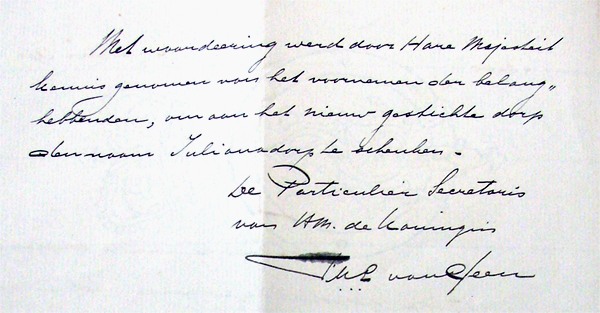 Met waardeering werd door Hare Majesteit
kennis genomen van het voornemen der belang„
hebbenden, om aan het nieuw gestichte dorp
den naam Julianadorp te schenken.
De Particulier Secretaris
van HM. de Koningin
van Geen